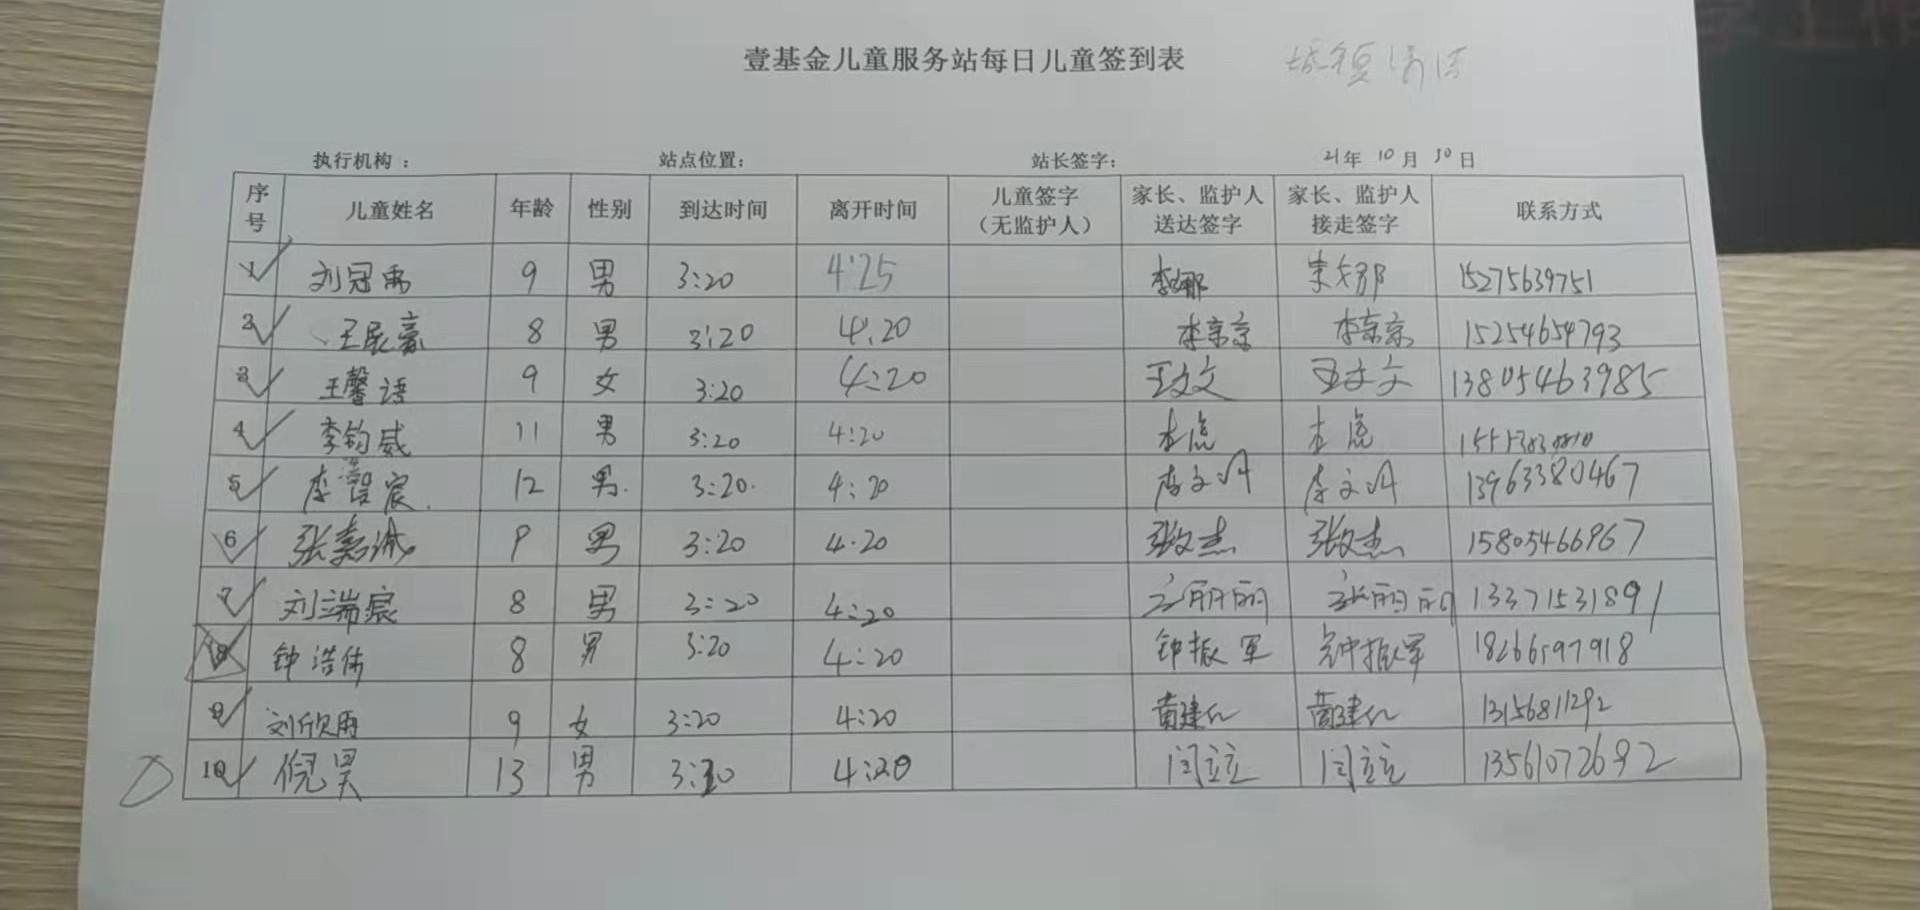 壹基金儿童服务站每日儿童签到表
执行机构： 站点位置： 站长签字： 21年 10月 30日
序号 儿童姓名 年龄 性别 到达时间 离开时间 儿童签字（无监护人） 家长、监护人送达签字 家长、监护人接走签字 联系方式
1 刘冠禹 9 男 3:20 4:25 李娜 李娜 15275639751
2 王辰豪 8 男 3:20 4:20 李京京 李京京 15254654793
3 王馨语 9 女 3:20 4:20 王文文 王文文 13805463985
4 李钧威 11 男 3:20 4:20
5 李智宸 12 男 3:20 4:20 李文 李文 13963380467
6 张嘉诚 9 男 3:20 4:20 张文杰 张文杰 15805466967
7 刘瑞宸 8 男 3:20 4:20 丽丽 丽丽 13371531891
8 钟浩伟 8 男 3:20 4:20 钟振军 钟振军 18266597918
9 刘欣雨 9 女 3:20 4:20 黄建 黄建 13156811292
10 倪昊 13 男 3:20 4:20 闫立立 闫立立 13561072692